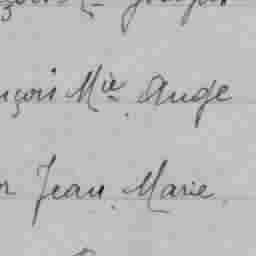 nçois Mie Ange
r Jean Marie